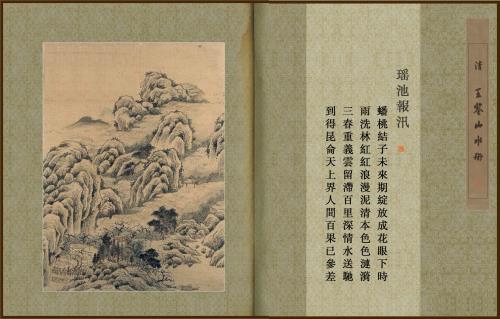 清 王 山水
瑤池報汛
蟠桃結子未來期綻放成花眼下時
雨洗林紅紅浪漫泥清本色色漣漪
三春重義雲留滯百里深情水送馳
到得昆侖天上界人間百果已參差